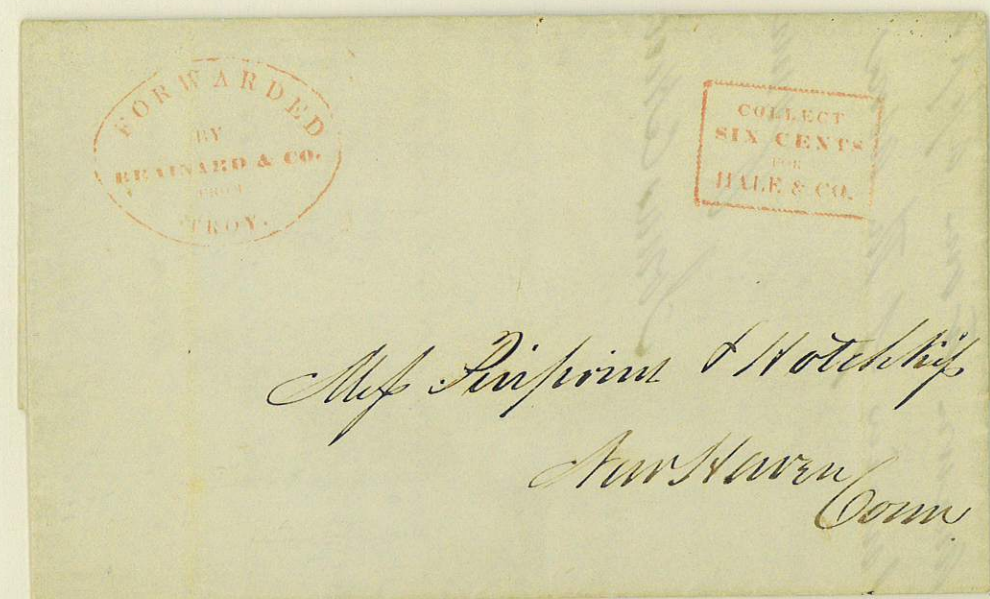 FORWARDED
BY
BRAINARD & CO.
FROM
TROY.
COLLECT
SIX CENTS
FOR
HALE & CO.
Mess Pierpoint & Hotchkiss
New Haven
Conn